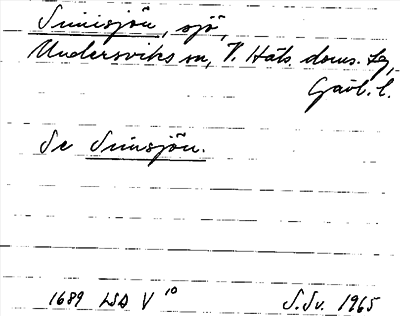 Sunisjön, sjö,
Undersviks sn, V. Häls. doms. tg,
Gävl. l.
Se Sunsjön.
1689 LSA V 10 S.Sv. 1965